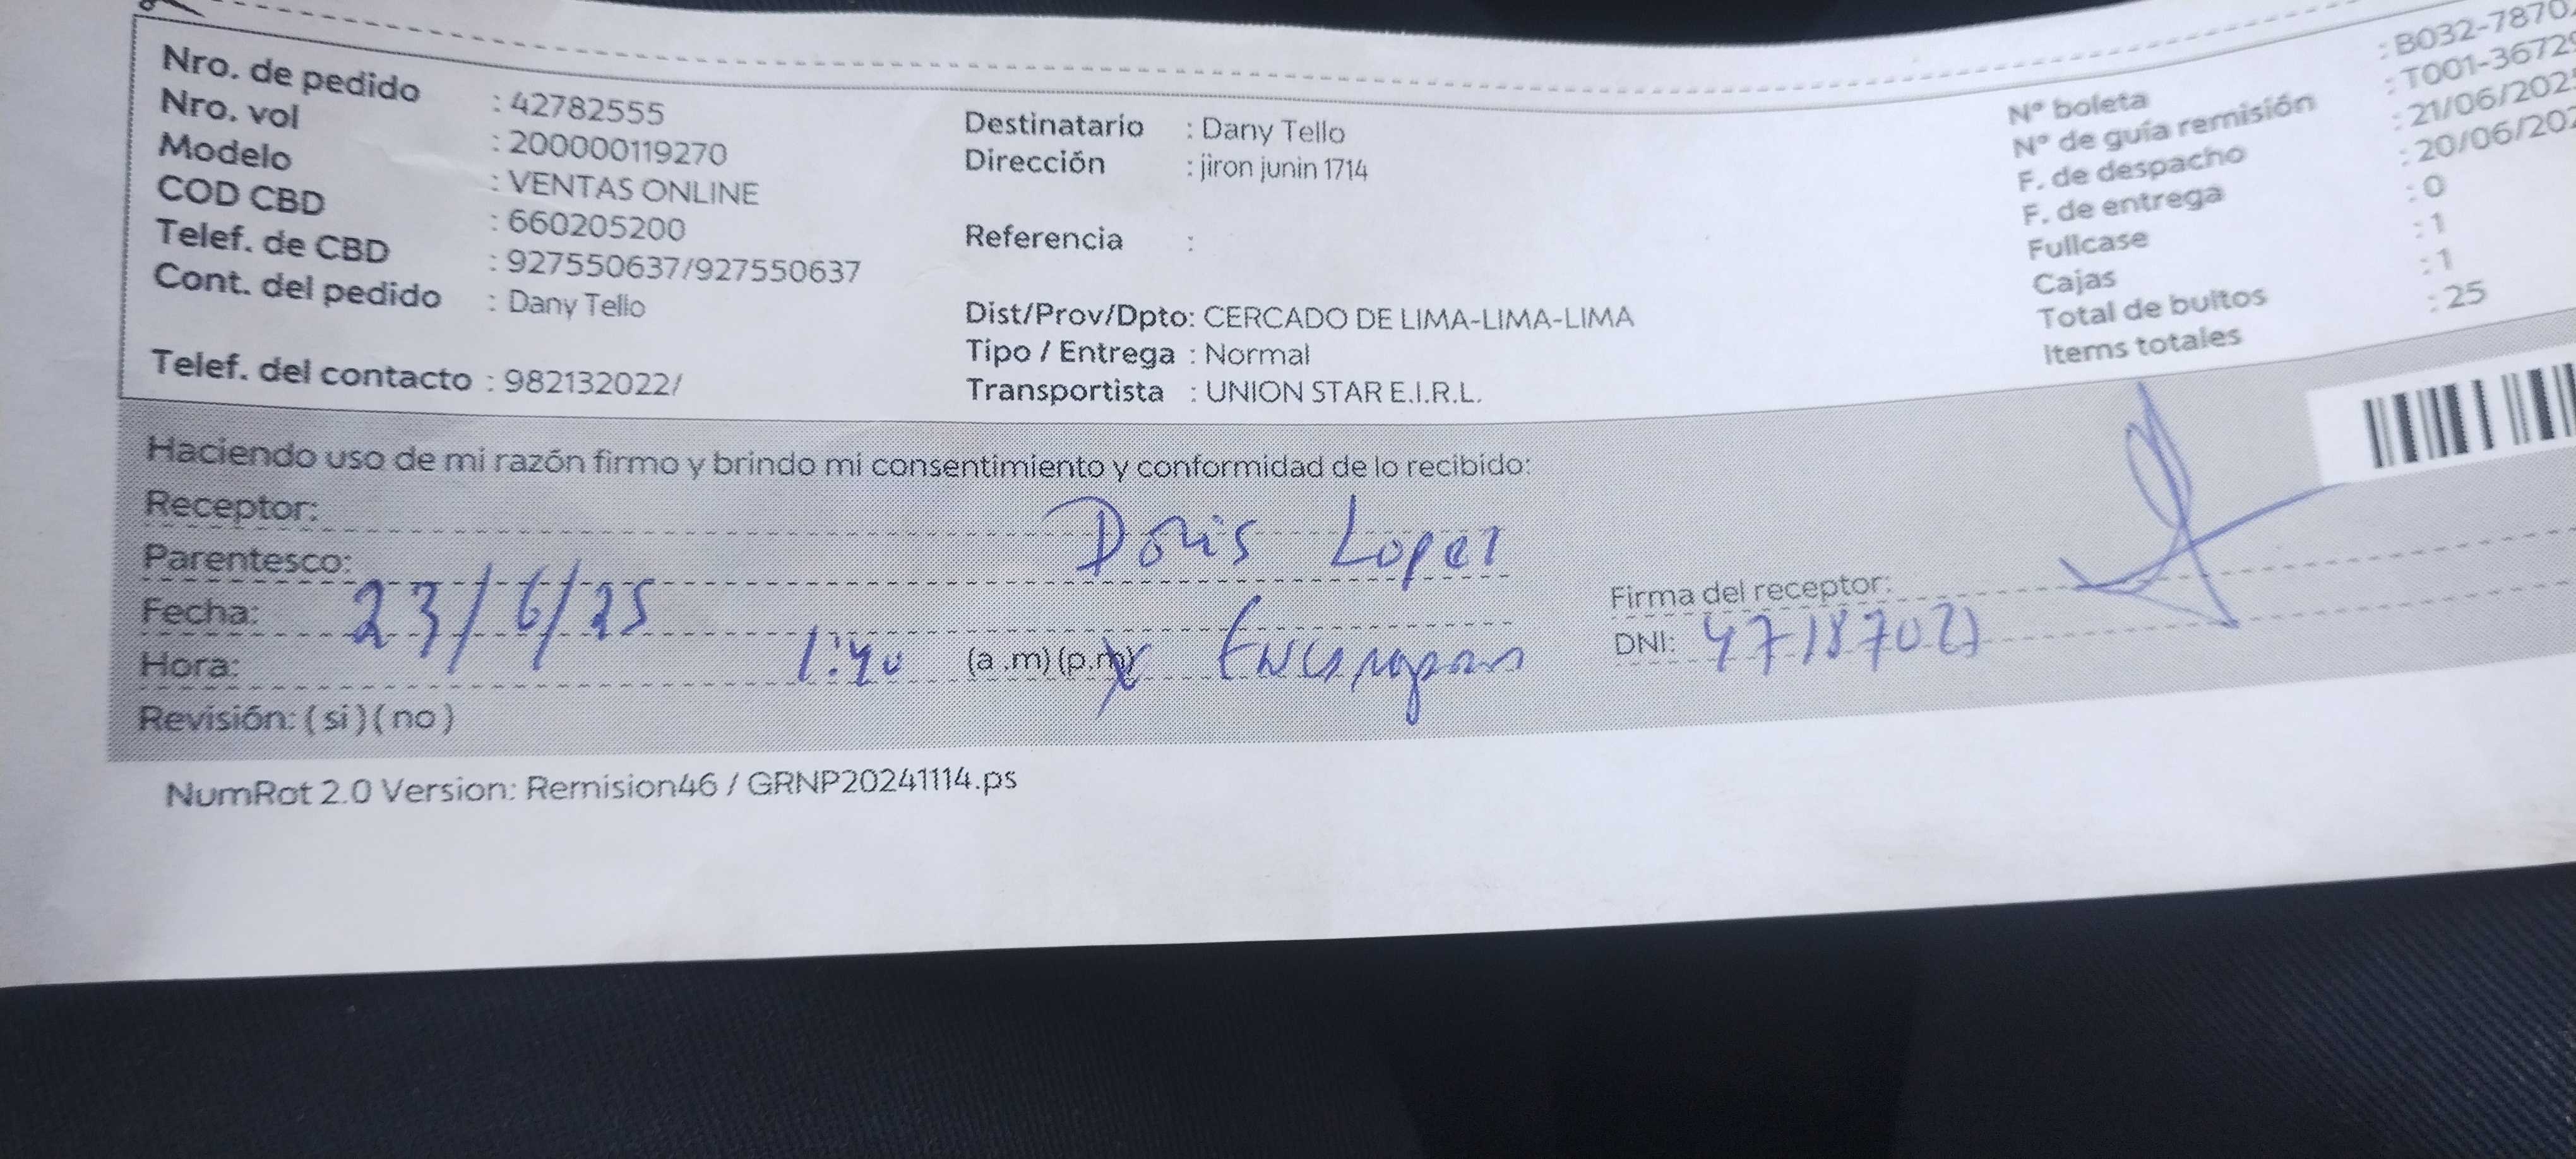 Nro. de pedido : 42782555
Nro. vol : 200000119270
Modelo : VENTAS ONLINE
COD CBD : 660205200
Telef. de CBD : 927550637/927550637
Cont. del pedido : Dany Tello
Telef. del contacto : 982132022/
Destinatario : Dany Tello
Dirección : jiron junin 1714
Referencia :
Dist/Prov/Dpto: CERCADO DE LIMA-LIMA-LIMA
Tipo / Entrega : Normal
Transportista : UNION STAR E.I.R.L.
N° boleta : B032-7870
N° de guía remisión : T001-36729
F. de despacho : 21/06/202
F. de entrega : 20/06/202
Fullcase : 0
Cajas : 1
Total de bultos : 1
Items totales : 25
Haciendo uso de mi razón firmo y brindo mi consentimiento y conformidad de lo recibido:
Receptor: Doris Lopez
Parentesco:
Fecha: 23/6/25
Hora: 1:40 (a .m) (p.m)
Revisión: ( si ) ( no )
Firma del receptor:
DNI: 47187027
NumRot 2.0 Version: Remision46 / GRNP20241114.ps